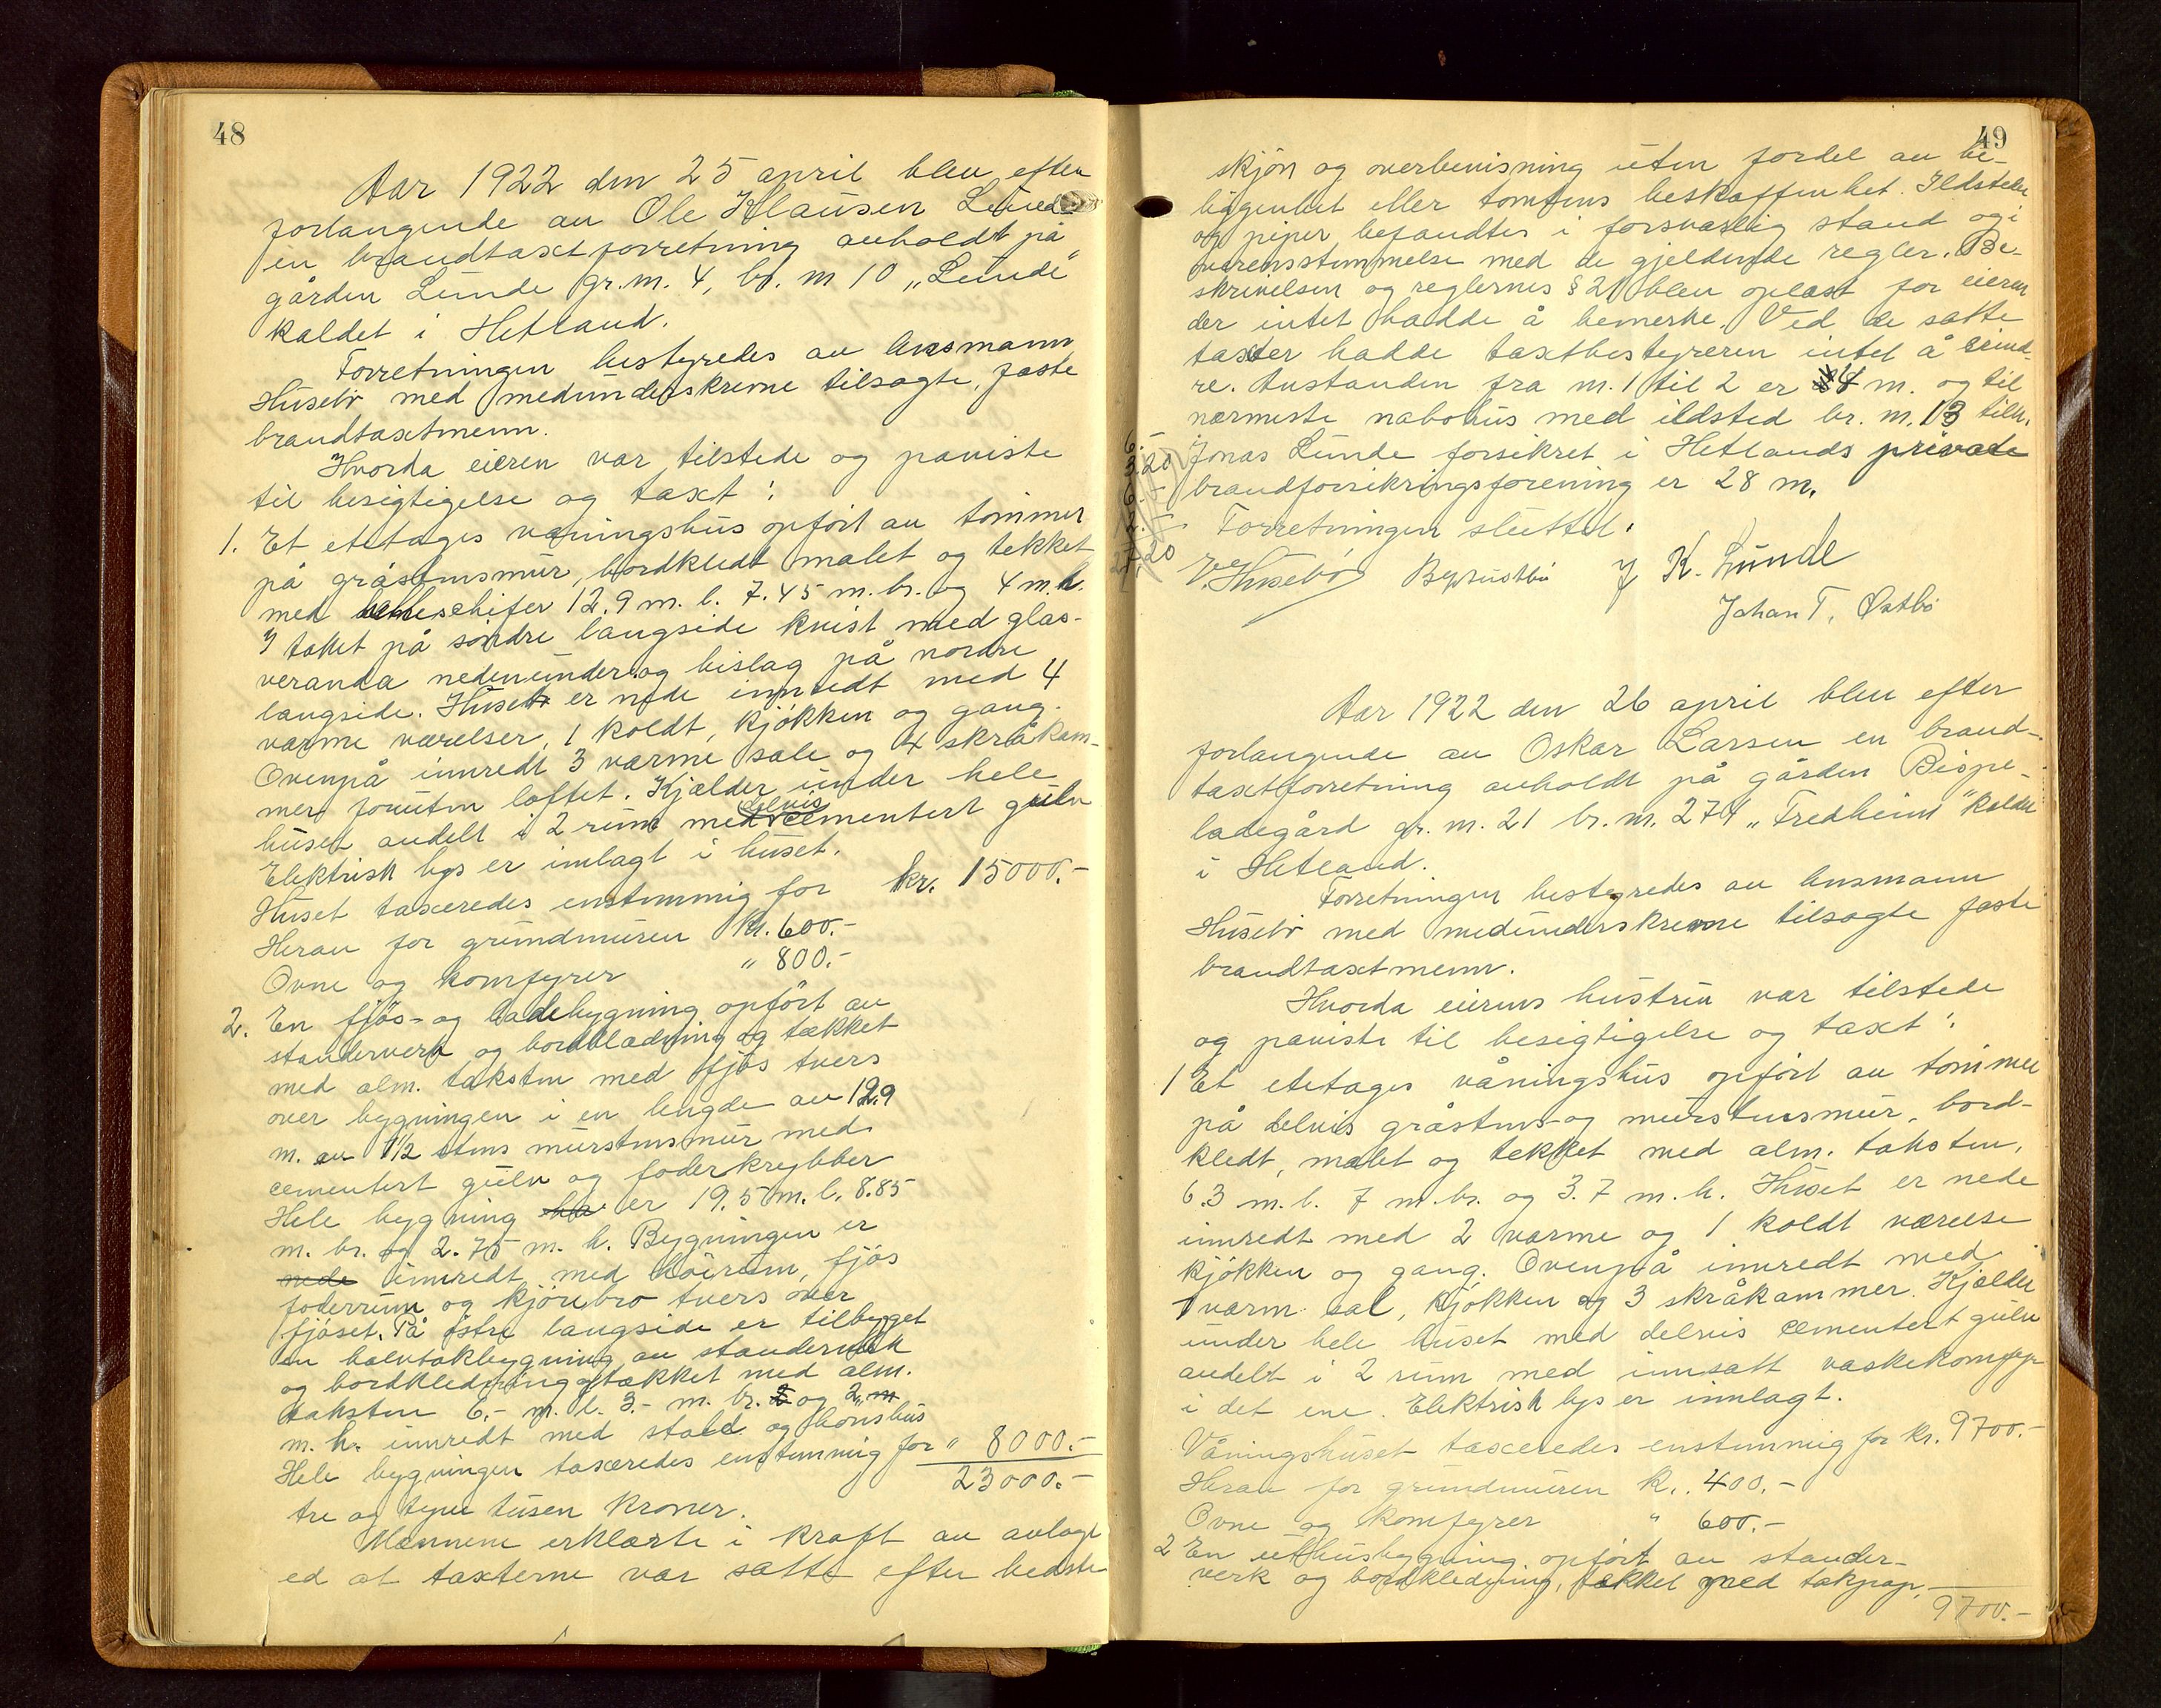 48
Aar 1922 den 25 april blev efter
forlangende av Ole Klausen Lunde
en brandtaxtforretning avholdt på
gården Lunde gr.nr. 4, br. nr 10 „Lunde"
kaldet i Hetland.
Forretningen bestyredes av lensmann
Husebø med medunderskrevne tilsagte, faste
brandtaxtmenn.
Hvorda eieren var tilstede og paviste
til besigtigelse og taxt:
1. Et etetages våningshus opfört av tömmer
på gråstensmur, bordkledt malet og tekket
med helleskifer 12.9 m. l. 7.45 m. br. og 4 m. h.
I taket på söndre langside kvist med glas-
veranda nedenunder og bislag på nordre
langside. Huset er nede innredt med 4
varme værelser, 1 koldt, kjökken og gang.
Ovenpå innredt 3 varme sale og 4 skråkam-
mer foruten loftet. Kjælder under hele
huset avdelt i 2 rum med delvis cementert gulv
Elektrisk lys er innlagt i huset.
Huset taxeredes enstemmig for kr. 15000.-
Herav for grundmuren kr. 600.-
Ovne og komfyrer " 800.-
2. En fjös- og ladebygning opfört av
standerverk og bordkledning og tækket
med alm. taksten med fjös tvers
over bygningen i en lengde av 12.9
m. av 1½ stens murstensmur med
cementert gulv og foderkrybber
Hele bygning er 19.5 m. l. 8.85
m. br. og 2.75 m. h. Bygningen er
nede innredt med höirum, fjös
foderrum og kjörebro tvers over
fjöset. På östre langside er tilbygget
en halvtakbygning av standerverk
og bordkledning tækket med alm.
taksten 6.- m. l. 3.- m. br. og 2
m. h. innredt med stald og hönshus
Hele bygningen taxeredes enstemmig for " 8000.-
23000.-
tre og tyve tusen kroner.
Mennene erklærte i kraft av avlagt
ed at taxterne var satte efter bedste
49
skjön og overbevisning uten fordel av be-
liggenhet eller tomtens beskaffenhet. Ildsteder
og piper befandtes i forsvarlig stand og i
overensstemmelse med de gjeldende regler. Be-
skrivelsen og reglernes § 21 blev oplæst for eieren
der intet hadde å bemerke. Ved de satte
taxter hadde taxtbestyreren intet å erind-
re. Avstanden fra nr. 1 til 2 er 8 m. og til
nærmeste nabohus med ildsted br. nr. 13 tilh.
Jonas Lunde forsikret i Hetlands private
brandforsikringsforening er 28 m.
Forretningen sluttet.
6.-
3.20
6.-
27.20
V. Husebø J. K. Lunde
Johan T. Østbö
Aar 1922 den 26 april blev efter
forlangende av Oskar Larsen en brand-
taxtforretning avholdt på gården Bispe-
ladegård gr. nr. 21 br. nr. 274 „Fredheim" kaldet
i Hetland.
Forretningen bestyredes av lensmann
Husebø med medunderskrevne tilsagte faste
brandtaxtmenn.
Hvorda eierens hustru var tilstede
og paviste til besigtigelse og taxt:
1 Et etetages våningshus opfört av tömmer
på delvis gråstens- og murstensmur, bord-
kledt, malet og tekket med alm. taksten,
6.3 m. l. 7 m. br. og 3.7 m. h. Huset er nede
innredt med 2 varme og 1 koldt værelse
kjökken og gang. Ovenpå innredt med
1 varm sal, kjökken og 3 skråkammer. Kjælder
under hele huset med delvis cementert gulv
avdelt i 2 rum med innsatt vaskekomfyr
i det ene. Elektrisk lys er innlagt.
Våningshuset taxeredes enstemmig for kr. 9700.-
Herav for grundmuren kr. 400.-
Ovne og komfyrer " 600.-
2 En uthusbygning opfört av stander-
verk og bordkledning, tækket med takpap.
9700.-